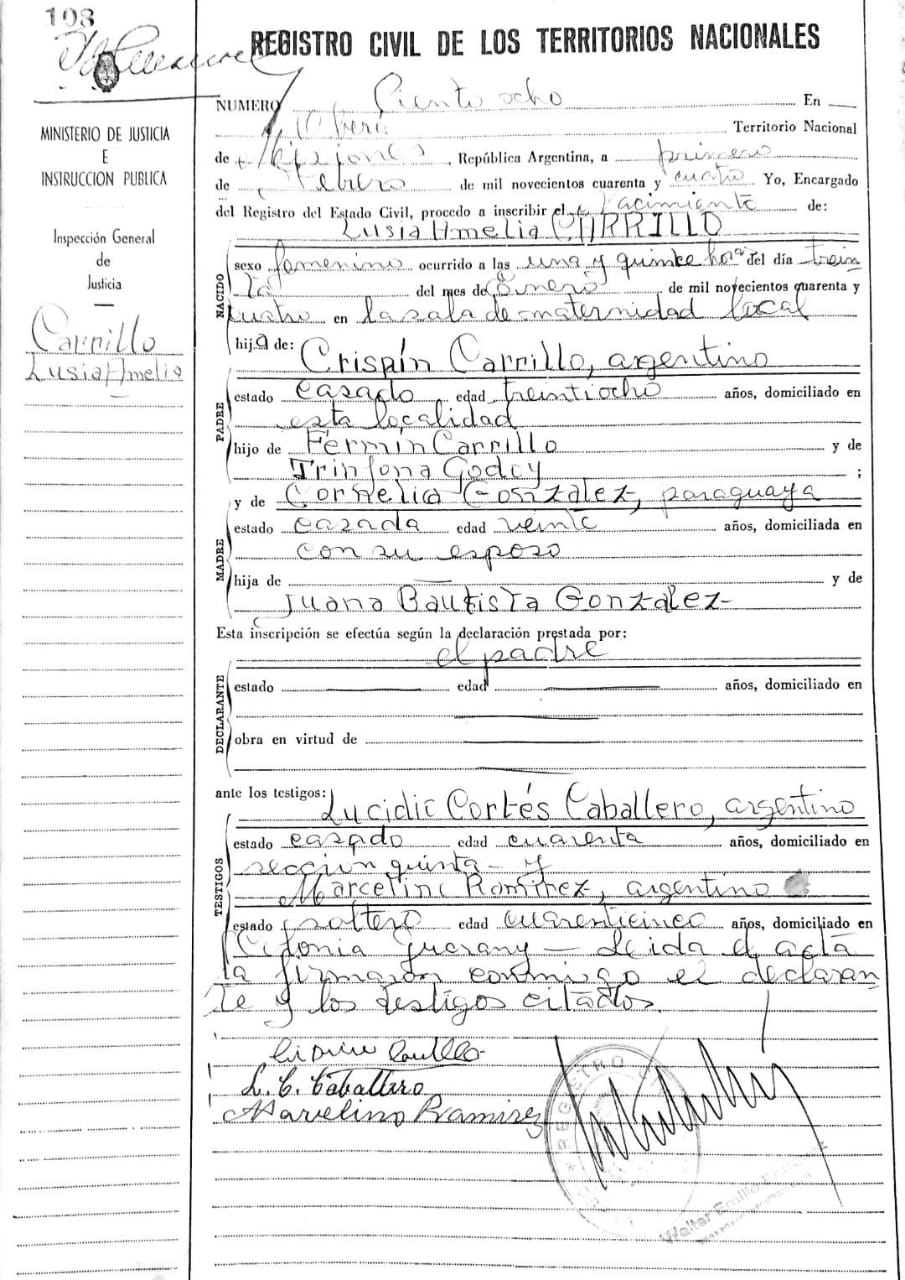 108
REGISTRO CIVIL DE LOS TERRITORIOS NACIONALES
MINISTERIO DE JUSTICIA
E
INSTRUCCION PUBLICA
Inspección General
de
Justicia
Carrillo
Lusia Amelia
NUMERO Ciento ocho En
Oberá Territorio Nacional
de Misiones, República Argentina, a primero
de Febrero de mil novecientos cuarenta y cuatro Yo, Encargado
del Registro del Estado Civil, procedo a inscribir el nacimiento de:
Lusia Amelia CARRILLO
NACIDO
sexo femenino ocurrido a las una y quince hora del día trein
ta del mes de Enero de mil novecientos cuarenta y
cuatro en la sala de maternidad local
hija de:
Crispín Carrillo, argentino
PADRE
estado casado edad treintiocho años, domiciliado en
esta localidad
hijo de Fermín Carrillo y de
Trinfona Godoy ;
y de Cornelia González, paraguaya
MADRE
estado casada edad veinte años, domiciliada en
con su esposo
hija de — y de
Juana Bautista González
Esta inscripción se efectúa según la declaración prestada por:
el padre
DECLARANTE
estado edad años, domiciliado en
obra en virtud de
ante los testigos:
Lucidio Cortés Caballero, argentino
TESTIGOS
estado casado edad cuarenta años, domiciliado en
sección quinta - y
Marcelino Ramirez, argentino
estado soltero edad cuarenticinco años, domiciliado en
Colonia Yucrany — Leida el acta
la firmaron conmigo el declaran
te y los testigos citados.
L. C. Caballero
Marcelino Ramirez
REGISTRO
Walter Emilio